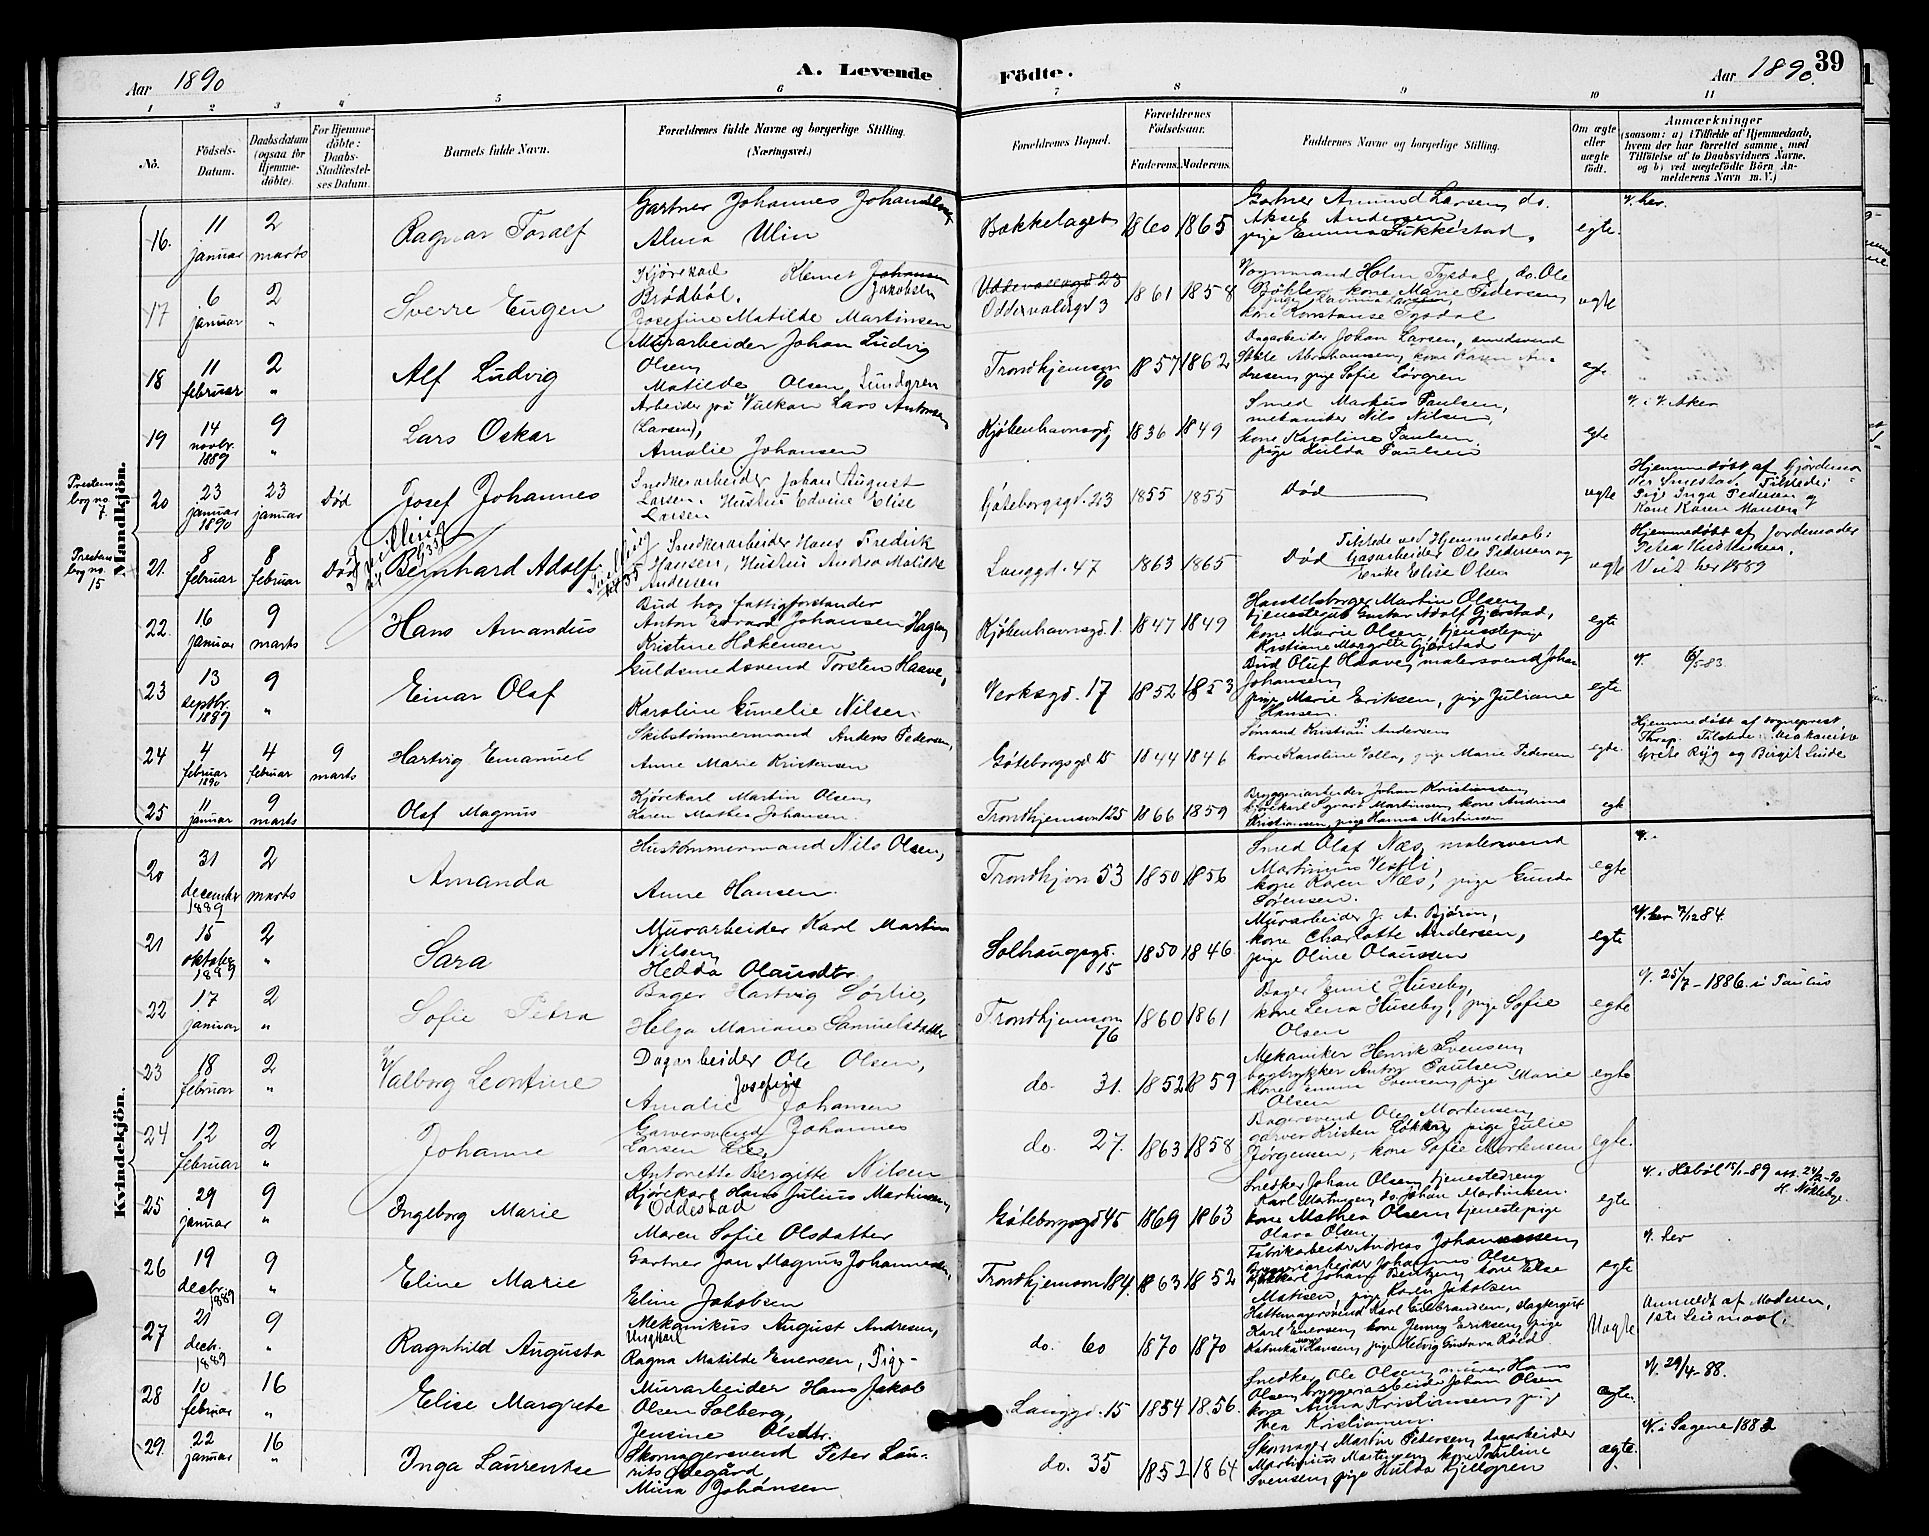 Aar 1890
A. Levende Födte.
Aar 1890.
39
1 2 3 4 5 6 7 8 9 10 11
No.
Födsels-Datum.
Daabsdatum (ogsaa for Hjemme-döbte).
For Hjemme-döbte: Daabs-Stadfæstel-ses Datum.
Barnets fulde Navn.
Forældrenes fulde Navne og borgerlige Stilling. (Næringsvei.)
Forældrenes Bopæl.
Forældrenes Födselsaar.
Faderens. Moderens.
Faddernes Navne og borgerlige Stilling.
Om ægte eller uægte födt.
Anmærkninger (saasom: a) i Tilfælde af Hjemmedaab, hvem der har forrettet samme, med Tilföielse af to Daabsvidners Navne, og b) ved uægtefödte Börn An-melderens Navn m. V.)
Mandkjön.
16. 11 januar 2 marts Ragnar Toralf
Gartner Johannes Johansen
Alma Ulin
Bækkelaget 1860 1865
Gartner Amund Larsen, do.
Aksel Andersen
pige Emma Tukkestad.
egte.
V. her.
17 6 januar 2 " Sverre Eugen
Kjørekarl Klemet Johansen Jakobsen
Brødbøl.
Josefine Matilde Martinsen
Uddevallagd 23
Oddervaldsgd 3
1861 1858
Vognmand Holm Tysdal, do. Ole
Bøkler, kone Marie Pedersen,
kone Konstanse Tysdal
egte
18 11 februar 2 " Alf Ludvig
Murarbeider Johan Ludvig
Olsen
Matilde Olsen Lundgren
Trondhjemsvn 90 1857 1862
Dagarbeider Johan Larsen, smedsvend
kone Karen An-
dresen, pige Sofie Løvgren
egt.
19 14 novbr. 1889 9 " Lars Oskar
Arbeider på Vulkan Lars Antonsen
(Larsen),
Amalie Johansen
Kjøbenhavnsgd 1 1836 1849
Smed Markus Paulsen,
mekaniker Nils Nilsen,
kone Karoline Paulsen.
pige Hulda Paulsen
egte
V. i V. Aker
Prestens bog no. 7.
20 23 januar 1890 23 januar Død Josef Johannes
Snedkerarbeider Johan August
Larsen. Hustru Edvine Elise
Larsen
Göteborgsgd. 23 1855 1855
Død
egte
Hjemmedöbt af Gjordemo-
der Smestad. Tilstede:
Pige Inga Pedersen og
Kone Karen Monsen
Prestens bog no. 15
21. 8 februar 8 februar Død Bernhard Adolf
Snedkerarbeider Hans Fredrik
Hansen, Hustru Andrea Matilde
Andersen
Langgd. 47 1863 1865
Død
Tilstede ved Hjemmedaab:
Gasarbeider Ole Pedersen og
Enke Elise Olsen
egte
Hjemmedöbt af Jordemoder
Petra
Viet her 1889
22. 16 januar 9 marts Hans Amandus
Bud hos fattigforstander
Anton Edvard Johansen Hagen
Kristine Håkensen
Kjøbenhavnsgd. 1. 1847 1849
Handelsborger Martin Olsen,
tjenestegut Gustav Adolf Gjerstad,
kone Marie Olsen, tjenestepige
Kristiane Margrette Gjerstad
egte
23 13 septbr. 1889 9 " Einar Olaf
Guldsmedsvend Torsten Haave,
Karoline Emelie Nilsen.
Verksgd. 17 1852 1853
Bud Oluf Haave, malersvend Johan
Johansen,
pige Marie Eriksen, pige Juliane
Hansen.
egte
V. 6/5 83.
24 4 februar 1890 4 februar 9 marts Hartvig Emanuel
Skibstømmermand Anders Pedersen,
Anne Marie Kristensen
Göteborgsgd 15 1844 1846
Sømand Kristian Andersen
kone Karoline Volla, pige Marie Pedersen
egte
Hjemmedöbt af sogneprest
Thrap. Tilstede: diakonisse
Grete Ryg og Birgit Linde
25 11 januar 9 marts Olaf Magnus
Kjörekarl Martin Olsen,
Karen Mathea Johansen.
Trondhjemsvn 125 1866 1859
Bryggeriarbeider Johan Kristiansen,
kjørekarl Sigvart Martinsen, kone Andrina
Kristiansen, pige Hanna Martinsen
egte
Kvindekjön.
20 31 december 1889 2 marts Amanda
Hustømmermand Nils Olsen,
Anne Hansen.
Trondhjem 53 1850 1856
Smed Olaf Næs, malersvend
Martinius Vestli,
kone Karen Næs, pige Gunda
Sørensen.
egte
V.
21 15 oktober 1889 2 " Sara
Murarbeider Karl Martin
Nilsen,
Hedda Olausdtr.
Solhaugsgd. 15 1850 1846
Murarbeider J. A. Bjørin,
kone Charlotte Andersen,
pige Oline Olaussen
egte
V. her 7/12 84.
22 17 januar 2 " Sofie Petra
Bager Hartvig Sørlie,
Helga Mariane Samuelsdatter
Trondhjemsvn 76 1860 1861
Bager Emil Huseby,
kone Lena Huseby, pige Sofie
Olsen
egte
V. 25/7-1886. i Paulus
23 18 februar 2 " Valborg Leontine
Dagarbeider Ole Olsen,
Amalie Josefine Johansen
do. 31. 1852 1859
Mekaniker Henrik Svensen,
bogtrykker Anton Paulsen
kone Emma Svensen, pige Marie
Olsen
egte
24 12 februar 2 " Johanne
Garversvend Johannes
Larsen Lie,
Antonette Bergitte Nilsen
do. 27. 1863 1858
Bagersvend Ole Mortensen,
garver Kristen Løkken, pige Julie
Jørgensen, kone Sofie Mortensen
egte.
25 29 januar 9 " Ingeborg Marie
Kjørekarl Hans Julius Martinsen,
Oddestad
Maren Sofie Olsdatter
Göteborgsgd 45 1869 1863
Snedker Johan Olsen, tjenestedreng
Karl Martinsen, do. Johan Martinsen.
kone Mathea Olsen, tjenestepige
Olava Olsen
egte
V. i Hobøl 15/1-89 att. 24/2-90
H. Nøkleby.
26 19 decbr. 1889 9 " Eline Marie
Gartner Jan Magnus Johannesen,
Eline Jakobsen
Trondhjemsvn 184. 1863 1852
Fabrikarbeider Andreas Johannessen,
Bryggeriarbeider Johannes Olsen
Johans Bentzen, kone Else
Matisen, pige Karen Jakobsen
egte
V. her
27 21 decb. 1889 9 " Ragnhild Augusta
Mekanikus August Andresen,
Ungkarl
Ragna Matilde Enersen, Pige-
do. 60 1870 1870
Hattemagersvend Karl Gulbrandsen, slagtergut
Karl Enersen, kone Jenny Eriksen, pige
Hansen, pige Helvig Gustava Röed
Uægte
Anmeldt af Moderen,
1ste Leiemaal.
28 10 februar 16 " Elise Margrete
Murarbeider Hans Jakob
Olsen Solberg,
Jensine Olsdtr.
Langgd. 15 1854 1856.
Snedker Ole Olsen, murer Hans
Olsen, bryggeriarbeider Johan Olsen
kone Anna Kristiansen, pige
Thea Kristiansen.
ægte.
V. 29/4-88.
29. 22 januar 16 " Inga Laurentse
Skomagersvend Peter Lau-
rits Ødegård,
Mina Johansen
do. 35 1852 1864
Skomager Martin Pedersen, dagarbeider
Martinius Martinsen, kone Pauline
Svensen, pige Hulda Kjellgren
ægte.
V. i Sagene 1883